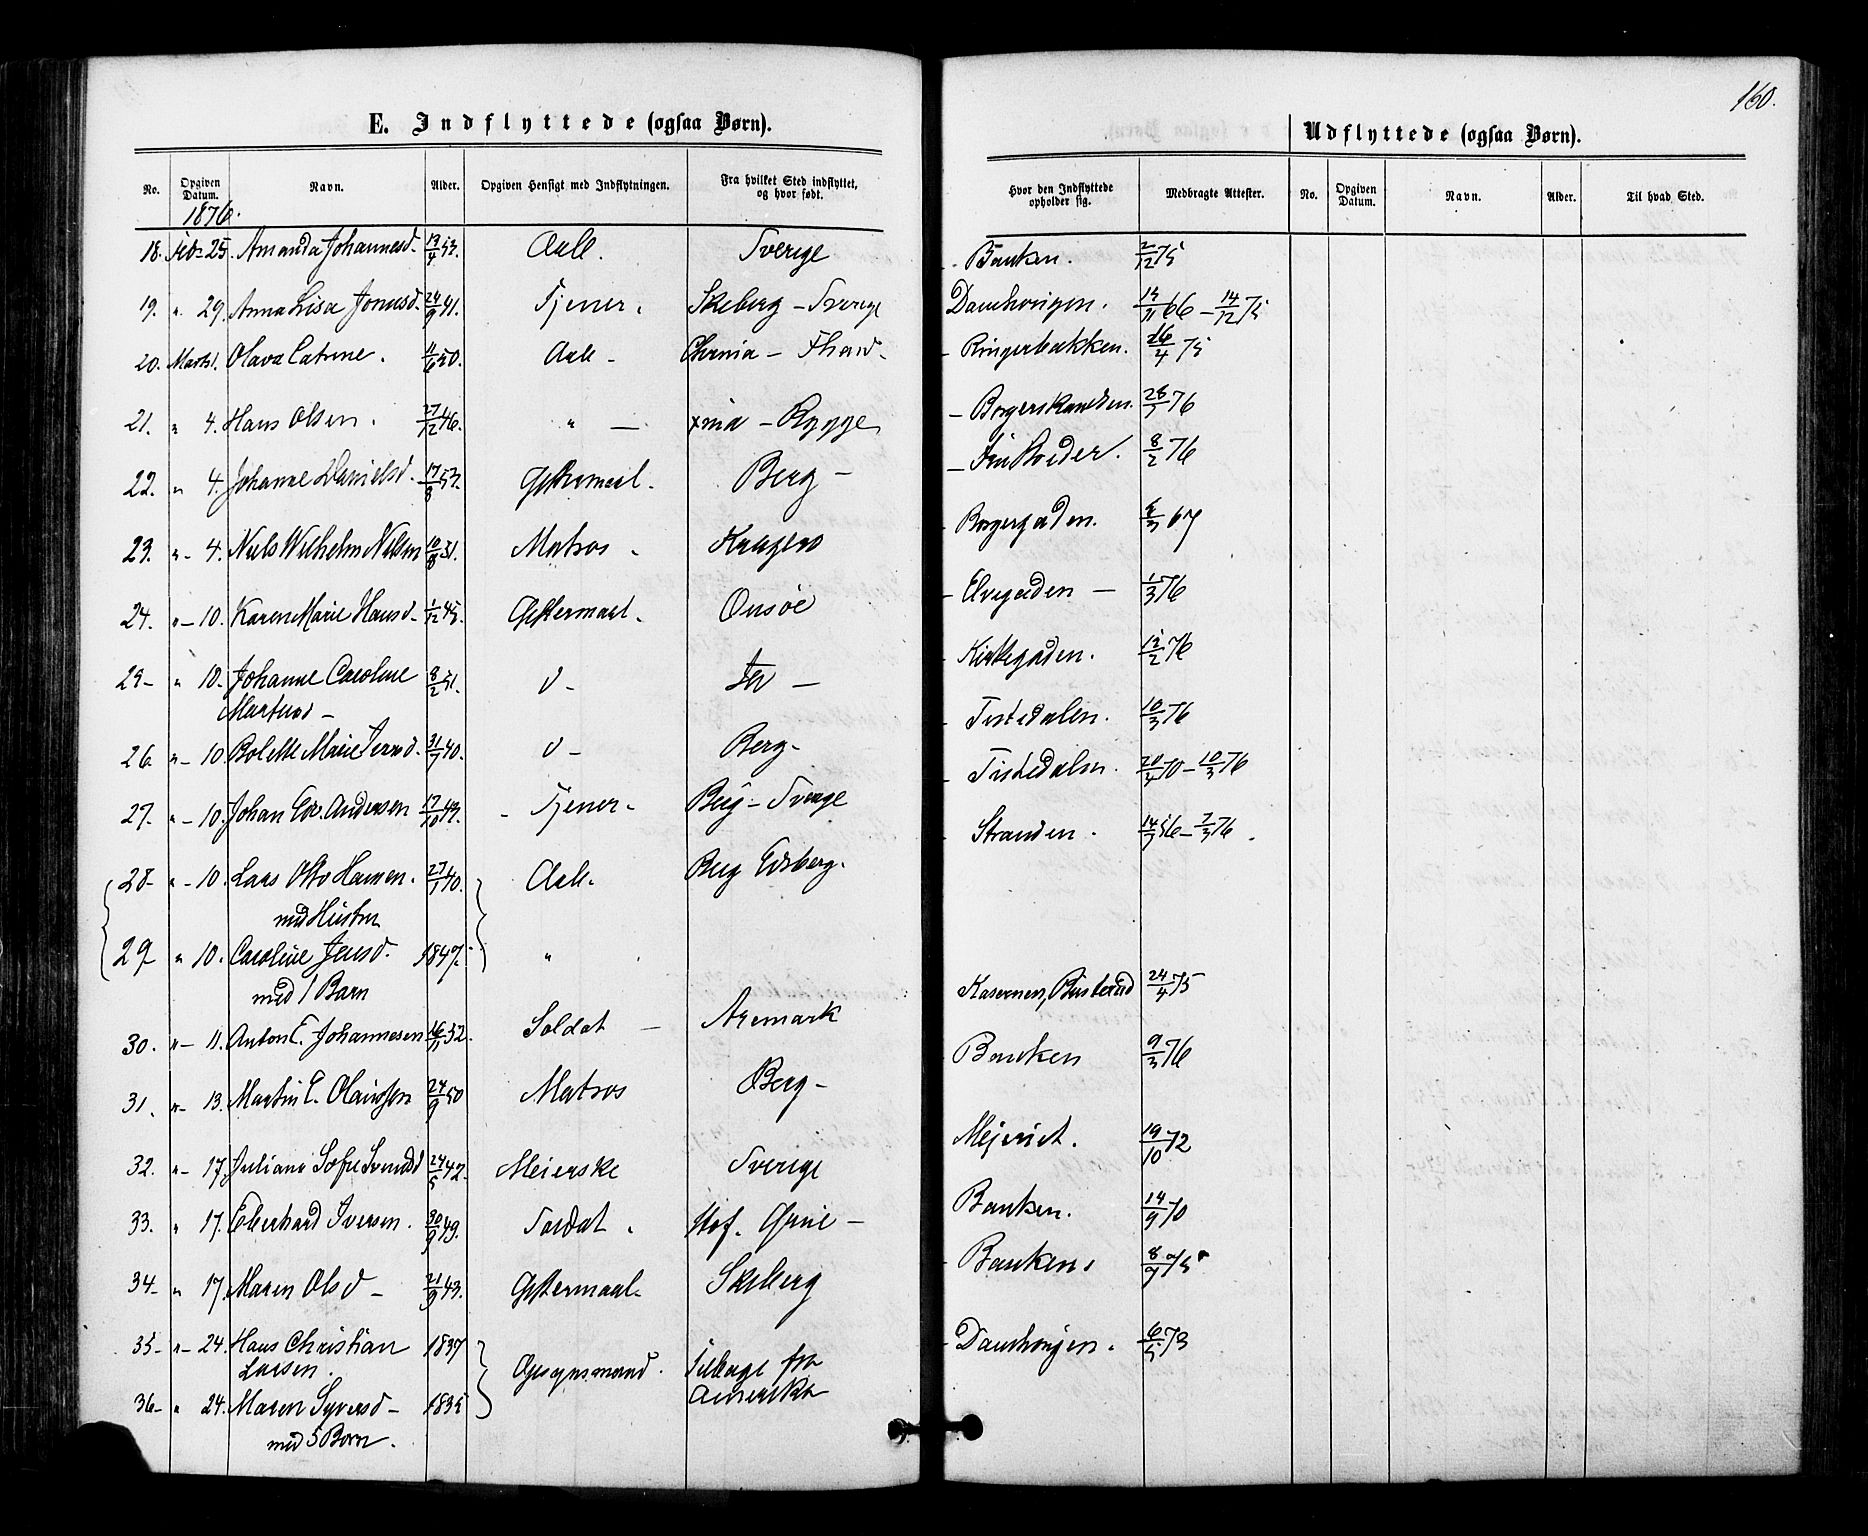 160.
E. Indflyttede (ogsaa Børn).
Udflyttede (ogsaa Børn).
No. Opgiven Datum. Navn. Alder. Opgiven Hensigt med Indflytningen. Fra hvilket Sted indflyttet, og hvor født. Hvor den Indflyttede opholder sig. Medbragte Attester. No. Opgiven Datum. Navn. Alder. Til hvad Sted.
1876.
18. Feb- 25. Amanda Johannesd. 13/4 53. Sverige Banken. 2/12 75
19. " 29. Anna Lisa Jonusd. 24/9 41. Tjener. Skeberg - Sverige 14/12 75
20. Marts 1. Olava Catrine. 11/6 50. - Fhald - Ringerbakken. 26/4 75
21. " 4. Hans Olsen. 27/12 46. " — xnia - Rygge 28/1 76
22. " 4. Johanne Danielsd. 17/8 53. Berg - 8/2 76
23. " - 4. Niels Wilhelm Nilsen 10/8 51. Matros - Kragerø Borgergaden. 67
24. " - 10. Karen Marie Hansd - 1/12 45. Gstermaal. Onsøe Elvegaden — 1/3 76
25 - " 10. Johanne Caroline 8/2 51. Kirkegaden. 12/2 76
26. " - 10. Bolette Marie 31/7 40. Berg - Tistedalen. 10/3 76
27. " - 10. Johan Edv. Andersen 17/10 49. - Tjener - Berg - Sverige Tistedalen. 20/4 70 - 10/3 76
28 - " - 10. Lars Otto Hansen. 27/1 40. Berg Edsberg. Stranden. 14/7 56 - 7/3 76.
med Hustru
29 " 10. Caroline Jensd. 1847. "
med 1 Barn
30. " - 11. Anton E. Johannesen 16/11 52. Soldat — Aremark Kasernen, 24/4 75
31. " - 13. Martin E. Olaussen 24/9 50 Matros Berg - Banken 9/3 76
32. " - 17. Juliane Sofie Svendsd 24/5 42. Meierske Sverige Mejeriet. 19/10 72
33. " 17. Eberhard Iversen. 30/9 49. Soldat. Hof. Banken. 14/9 70
34 - " 17. Maren Olsd - 21/9 43. Gstermaal. Skeberg Banken. 8/7 75
35 - " - 24. Hans Christian 1837 Opsynsmand. Tilbage fra 6/5 73
Larsen. Amerika
36 - " 24. Maren Syversd - 1835
med 5 Børn.